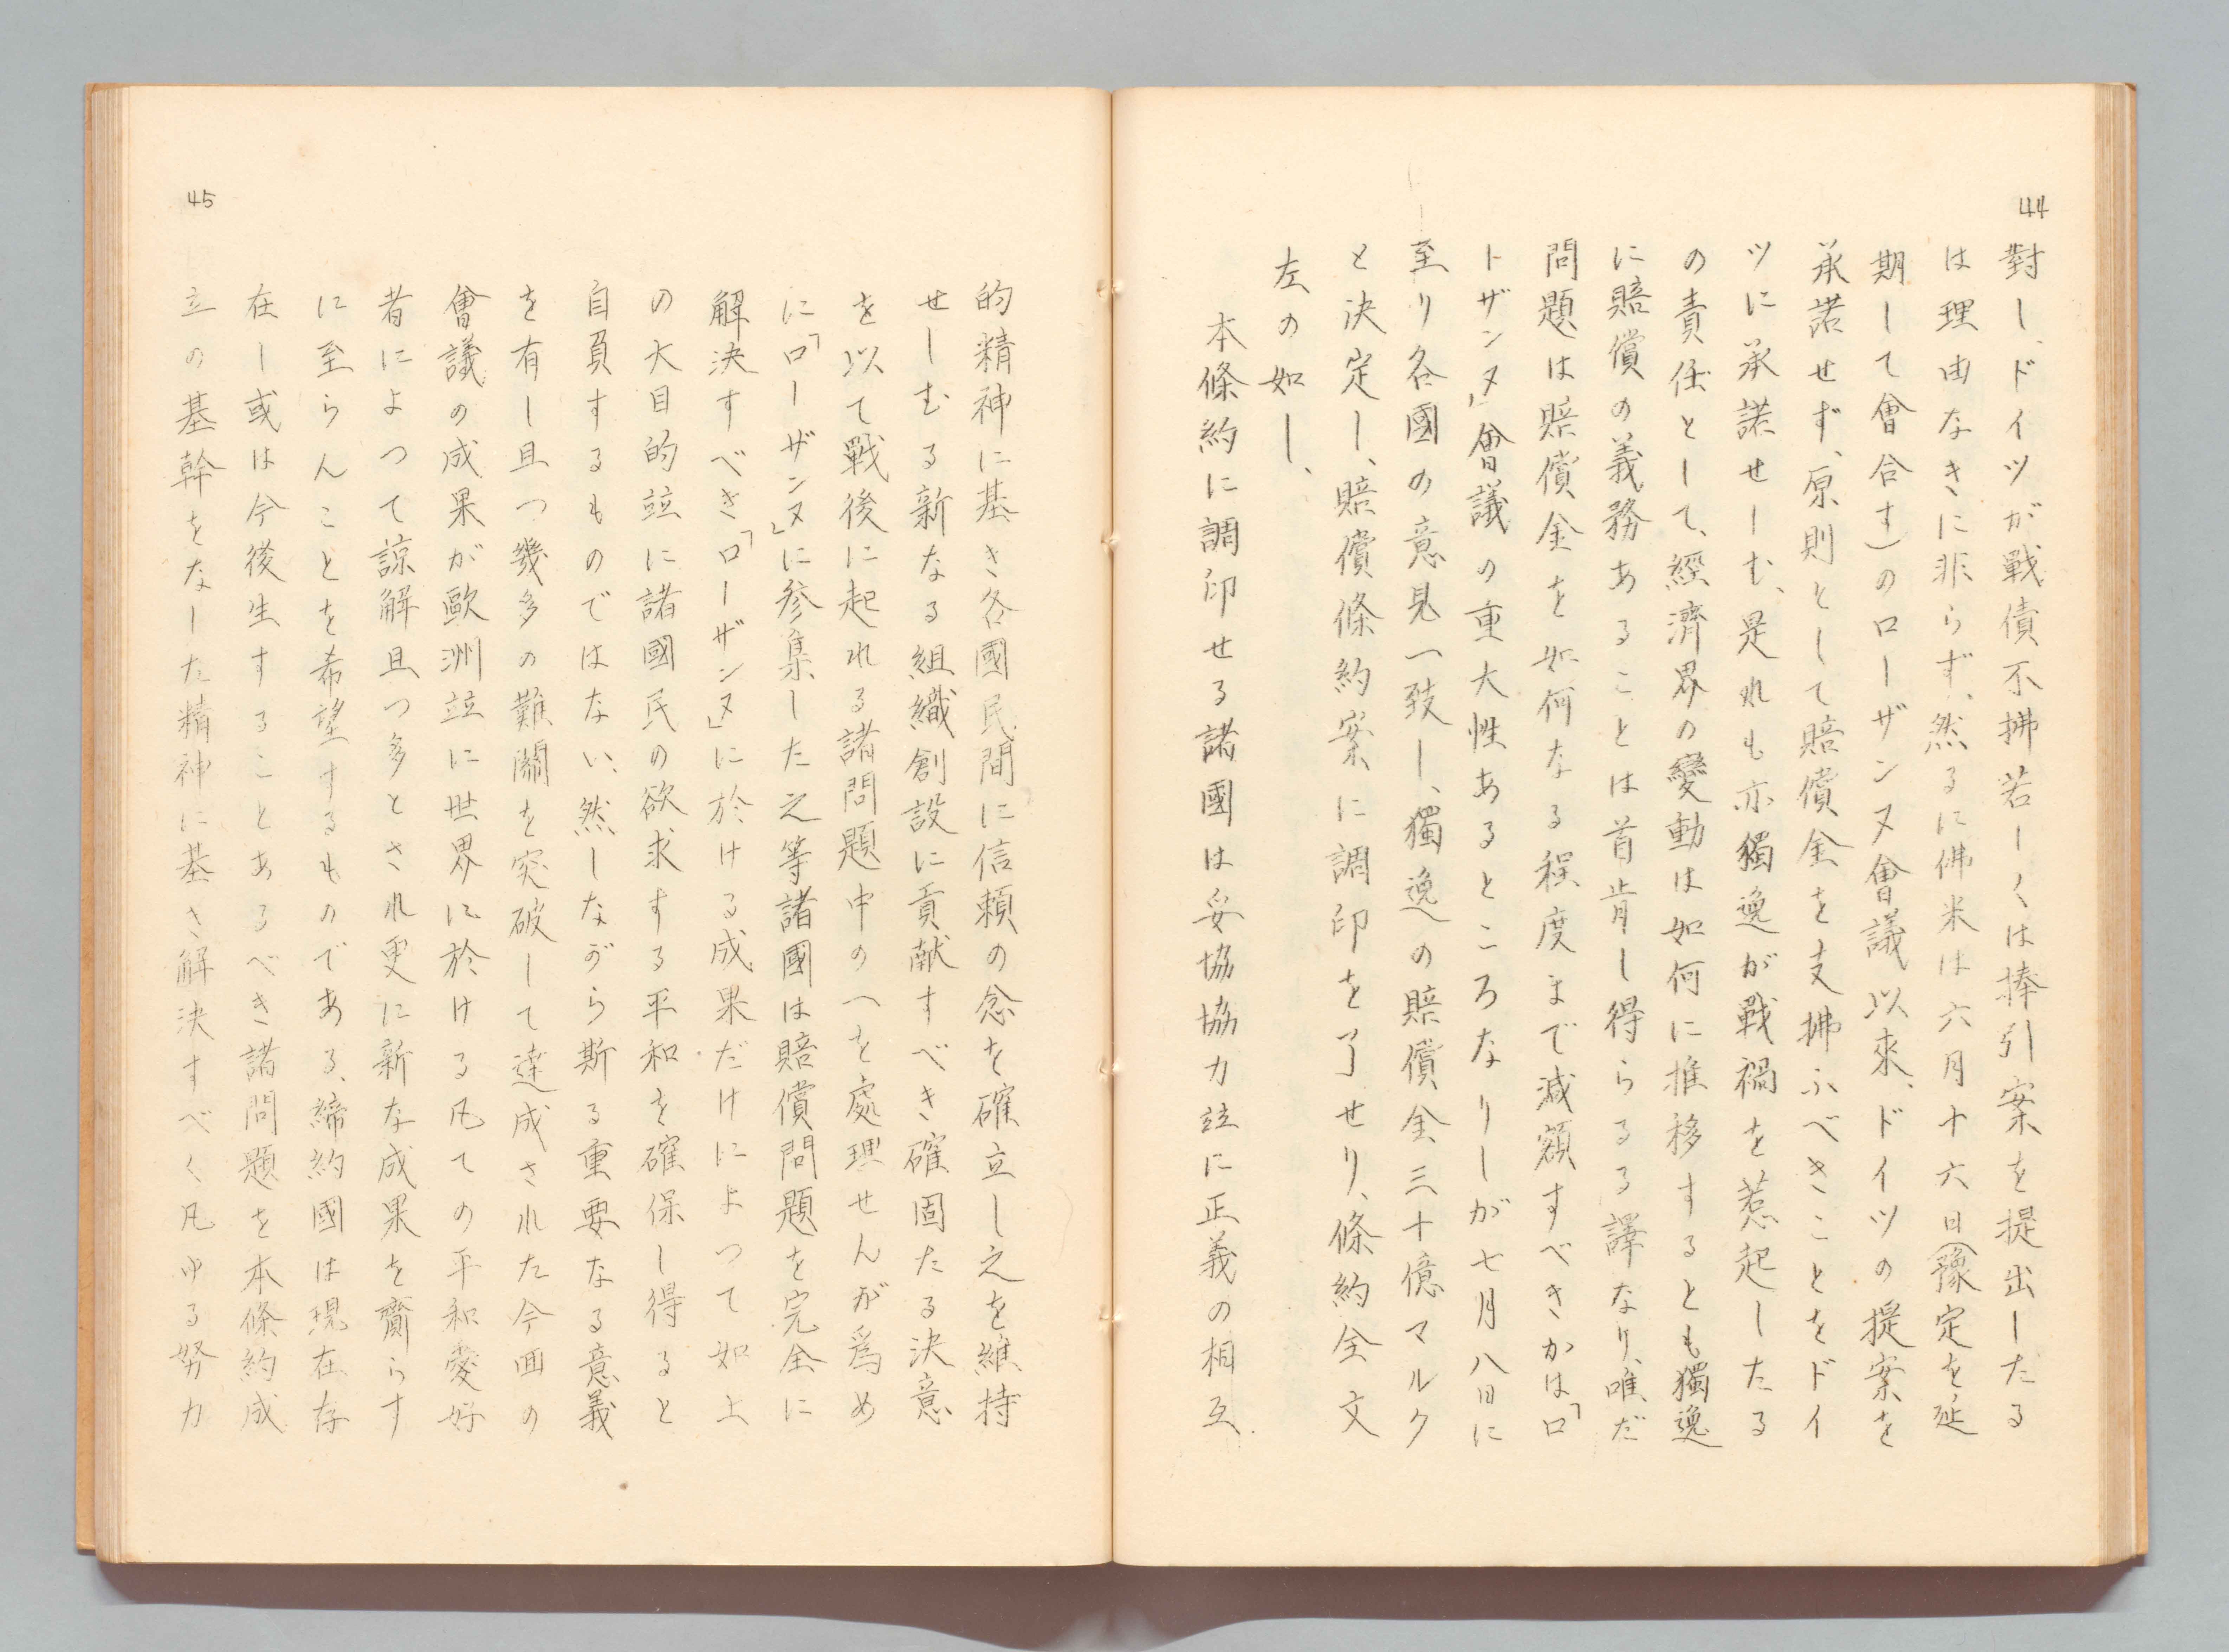 44
對し、ドイツが戰債不拂若しくは捧引案を提出したる
は理由なきに非らず、然るに佛米は六月十六日(豫定を延
期して會合す)のローザンヌ會議以來、ドイツの提案を
承諾せず、原則として賠償金を支拂ふべきことをドイ
ツに承諾せしむ、是れも亦獨逸が戰禍を惹起したる
の責任として、經濟界の變動は如何に推移するとも獨逸
に賠償の義務あることは首肯し得らるる譯なり、唯だ
問題は賠償金を如何なる程度まで減額すべきかは「ロ
ーザンヌ」會議の重大性あるところなりしが七月八日に
至り各國の意見一致し、獨逸の賠償金三十億マルク
と決定し、賠償條約案に調印を了せり、條約全文
左の如し、
本條約に調印せる諸國は妥協協力竝に正義の相互
45
的精神に基き各國民間に信頼の念を確立し之を維持
せしむる新なる組織創設に貢献すべき確固たる決意
を以て戰後に起れる諸問題中の一を處理せんが爲め
に「ローザンヌ」に参集した之等諸國は賠償問題を完全に
解決すべき「ローザンヌ」に於ける成果だけによつて如上
の大目的竝に諸國民の欲求する平和を確保し得ると
自負するものではない、然しながら斯る重要なる意義
を有し且つ幾多の難關を突破して達成された今囬の
會議の成果が歐洲竝に世界に於ける凡ての平和愛好
者によつて諒解且つ多とされ更に新な成果を齎らす
に至らんことを希望するものである、締約國は現在存
在し或は今後生することあるべき諸問題を本條約成
立の基幹をなした精神に基き解決すべく凡ゆる努力